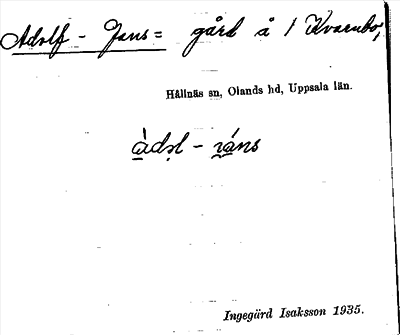 Adolf - Jans = gård å 1 Kvarnbo,
Hållnäs sn, Olands hd, Uppsala län.
Ingegärd Isaksson 1935.